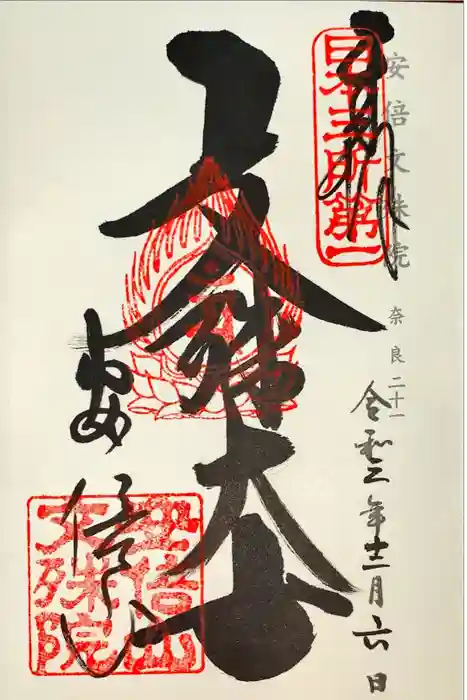 安倍文殊院 奈良二十一
奉拝
日本三所第一
令和二年十二月六日
文殊大士
安倍山
安倍山
文殊院